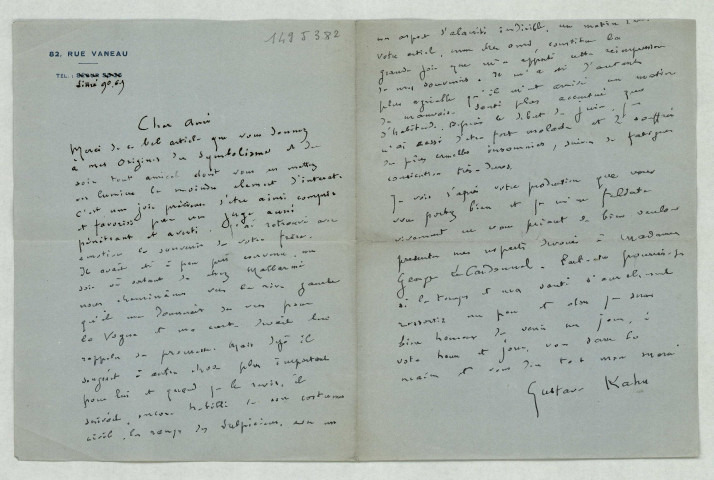 1495382
82, RUE VANEAU
TÉL :
Littré 90.69
Cher Ami
Merci de ce bel article que vous donnez
à mes Origines du Symbolisme et du
soin tout amical dont vous en mettez
en lumière le moindre élément d'intérêt
C'est une joie précieuse d'être ainsi compris
et favorisé par un juge aussi
pénétrant et averti. J'ai retrouvé avec
émotion le souvenir de votre frère.
Il avait été à peu près convenu, un
soir où sortant de chez Mallarmé
nous cheminâmes vers la rive gauche
qu'il me donnerait des vers pour
la Vogue et ma carte devait lui
rappeler sa promesse. Mais déjà il
songeait à autre chose plus important
pour lui et quand je le revis, il
arrivait, encore habillé de son costume
civil, en rang des Sulpiciens, avec un
un aspect d'alacrité indicible, un matin
votre article, mon cher ami, constitue la
grande joie que m'a apporté cette réimpression
de mes souvenirs. Il m'a été d'autant
plus agréable qu'il m'est arrivé un matin
de mauvaise santé plus accentué que
d'habitude. Depuis le début de juin, je
n'ai cessé d'être fort malade et j'ai souffert
de très cruelles insomnies, suivies de fatigues
consécutives très dures.
Je vois d'après votre production que vous
vous portez bien et je m'en félicite
vivement en vous priant de bien vouloir
présenter mes respects dévoués à Madame
George Le Cardonnel. Peut-être pourrai-je
si le temps et ma santé s'améliorent
ressortir un peu et alors je serais
bien heureux de venir un jour, à
votre heure et jour, vous serrer la
main et vous dire tout mon merci
Gustave Kahn